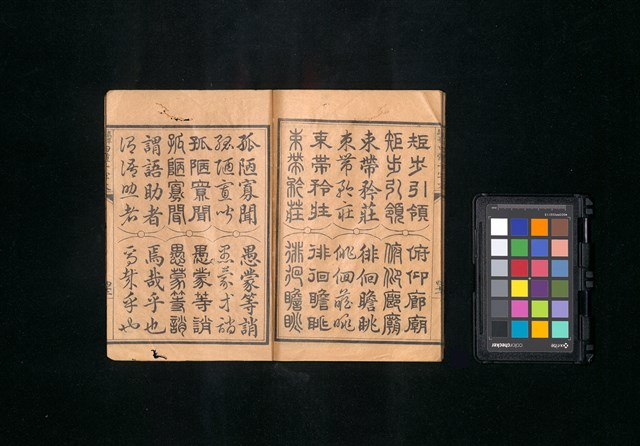 矩步引領 俯仰廊廟
矩步引領 俯仰廊廟
束帶矜莊 徘徊瞻眺
束帶矜莊 徘徊瞻眺
束帶矜莊 徘徊瞻眺
束帶矜莊 徘徊瞻眺
孤陋寡聞 愚蒙等誚
孤陋寡聞 愚蒙等誚
孤陋寡聞 愚蒙等誚
孤陋寡聞 愚蒙等誚
謂語助者 焉哉乎也
謂語助者 焉哉乎也
colorchecker
x-rite